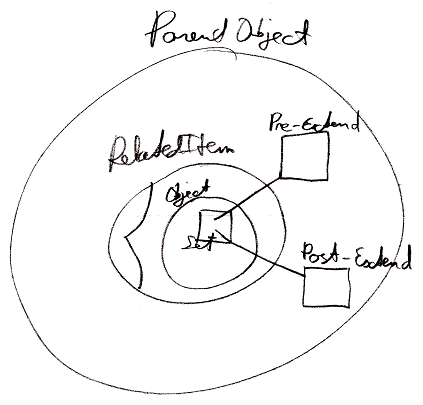 Parent Object
Pre-Extend
RelatedItem
Object
Set
Post-Extend